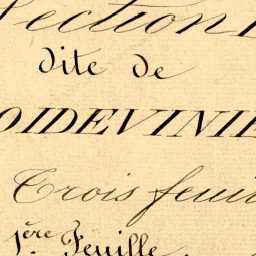 Section
dite de
OIDEVINIE
Trois feuil
1ère Feuille.